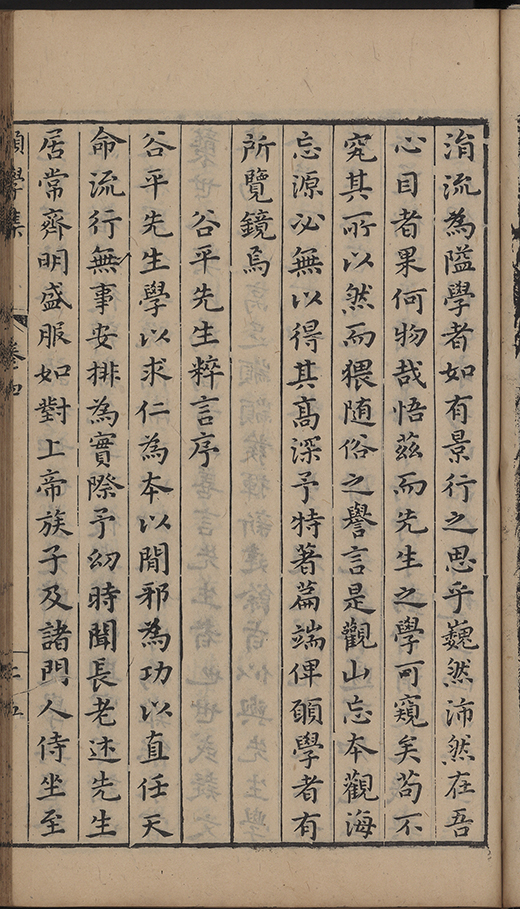 淯流為隘學者如有景行之思乎巍然沛然在吾
心目者果何物哉悟茲而先生之學可窺矣苟不
究其所以然而猥随俗之譽言是觀山忘本觀海
忘源必無以得其高深予特著篇端俾願學者有
所覽鏡焉
谷平先生粹言序
谷平先生學以求仁為本以閒邪為功以直任天
命流行無事安排為實際予幼時聞長老述先生
居常齊明盛服如對上帝族子及諸門人侍坐至
學集
卷四